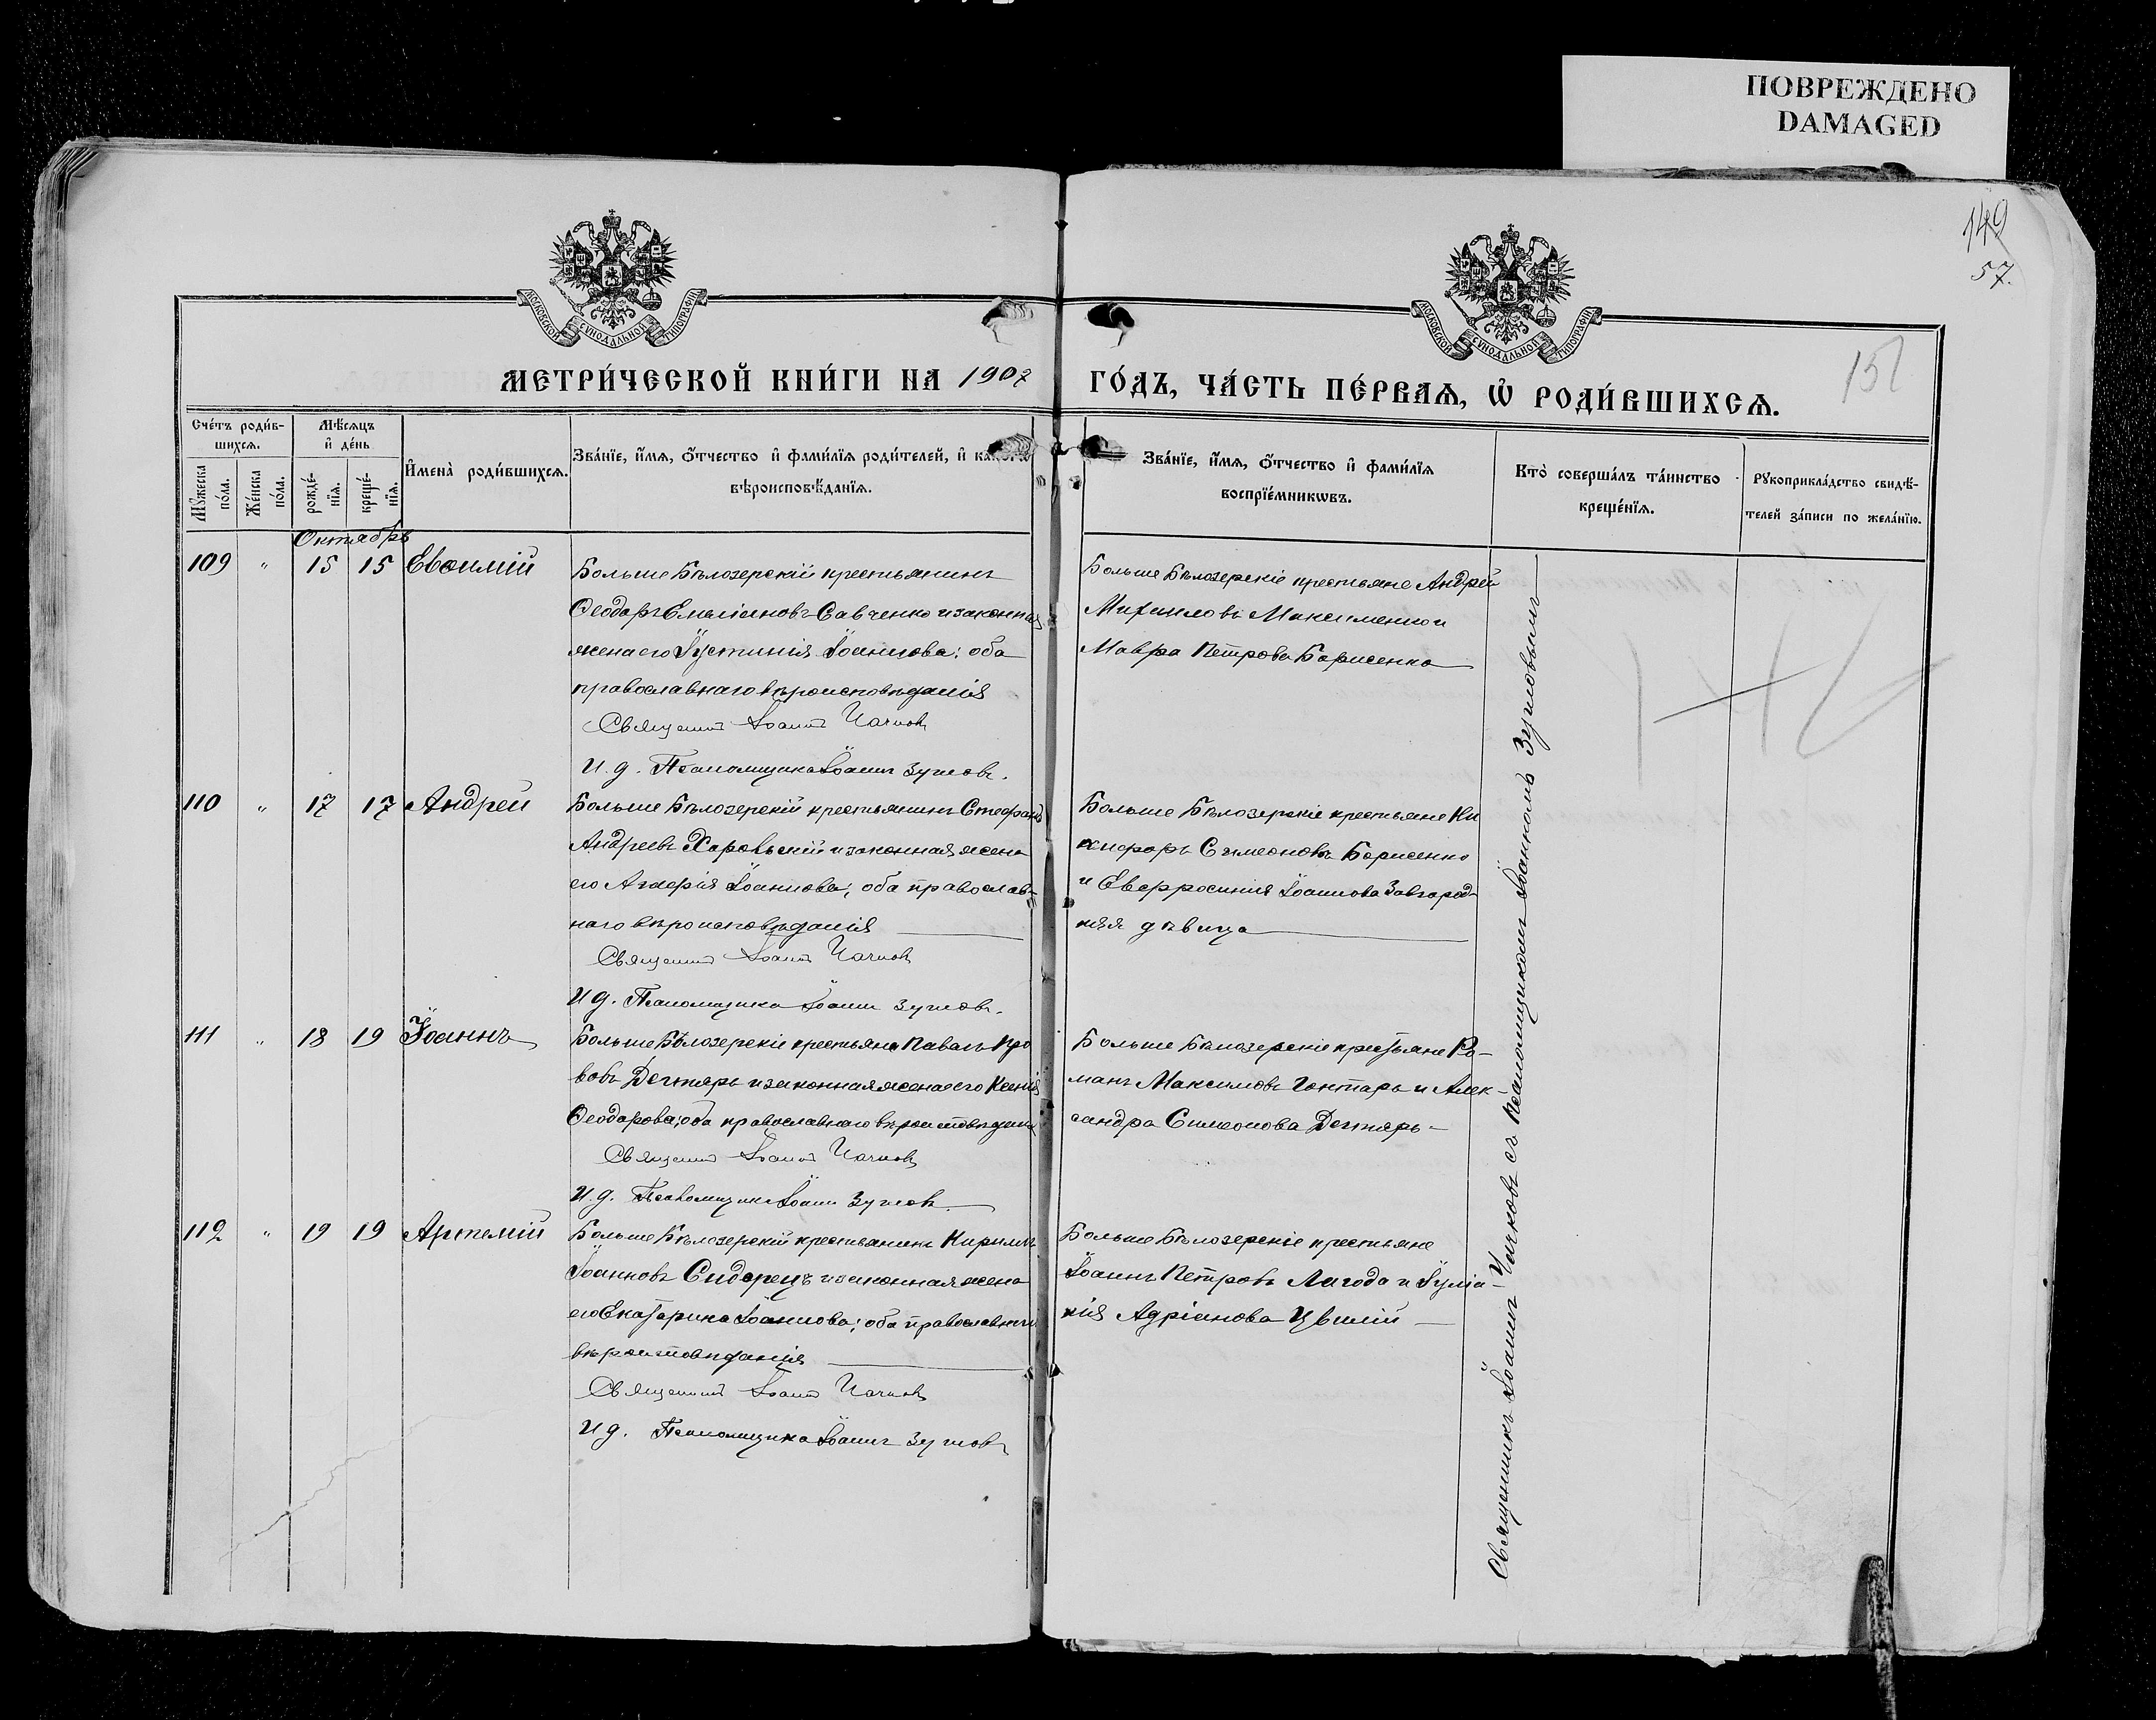 ПОВРЕЖДЕНО
DAMAGED
149
57.
151
МОСКОВСКОЙ СѴНОДАЛЬНОЙ ТИПОГРАФІИ
МОСКОВСКОЙ СѴНОДАЛЬНОЙ ТИПОГРАФІИ
МЕТРИ́ЧЕСКОЙ КНИ́ГИ НА 1907 ГО́ДЪ, ЧА́СТЬ ПЕ́РВАѦ, Ѡ҆ РОДИ́ВШИХСѦ.
Сче́тъ роди́в-
шихсѧ.
Мꙋ́жеска по́ла.
Же́нска по́ла.
Мѣ́сѧцъ
и҆ де́нь
рожде́-
нїѧ.
креще́-
нїѧ.
И҆мена̀ роди́вшихсѧ.
Зва́нїе, и҆́мѧ, ѻ҆́тчество и҆ фами́лїѧ роди́телей, и҆
вѣроисповѣ́данїѧ.
Зва́нїе, и҆́мѧ, ѻ҆́тчество и҆ фами́лїѧ
воспрїе́мникѡвъ.
Кто̀ соверша́лъ та́инство
креще́нїѧ.
Рꙋкоприкла́дство свидѣ́-
телей за́писи по жела́нїю.
Октябрь
109 " 15 15 Евѳимій
Больше Бѣлозерскій крестьянинъ
Ѳеодоръ Емиліановъ Савченко и законная
жена его Іустинія Іоаннова; оба
православнаго вѣроисповѣданія
Священникъ Іоаннъ Чачковъ
И. д. Псаломщика Іоаннъ Зуиловъ.
Больше Бѣлозерскіе крестьяне Андрей
Михаиловъ Максименко и
Мавра Петрова Борисенко
110 " 17 17 Андрей
Больше Бѣлозерскій крестьянинъ Стефанъ
Андреевъ Харовьскій и законная жена
его Агафія Іоаннова; оба православ-
наго вѣроисповѣданія
Священникъ Іоаннъ Чачковъ
И д. Псаломщика Іоаннъ Зуиловъ.
Больше Бѣлозерскіе крестьяне Ни
кифоръ Симеоновъ Борисенко
и Евфросинія Іоаннова Завгород-
няя дѣвица
111 " 18 19 Іоаннъ
Больше Бѣлозерскіе крестьяне Павелъ
Дегтярь и законная жена его Ксенія
Ѳеодорова; оба православнаго вѣроисповѣданія
Священникъ Іоаннъ Чачковъ
И. д. Псаломщика Іоаннъ Зуиловъ.
Больше Бѣлозерскіе крестьяне Ро-
манъ Максимовъ Гонтарь и Алек-
сандра Симеонова Дегтярь
112 " 19 19 Артемій
Больше Бѣлозерскій крестьянинъ Кириллъ
Іоанновъ Сидорецъ и законная жена
его Екатерина Іоаннова; оба православнаго
вѣроисповѣданія
Священникъ Іоаннъ Чачковъ
И д. Псаломщика Іоаннъ Зуиловъ
Больше Бѣлозерскіе крестьяне
Іоаннъ Петровъ Лагода и Іуліа-
нія Адріанова Цвилій
Священникъ Іоаннъ Чачковъ съ Псаломщикомъ Іоанномъ Зуиловымъ